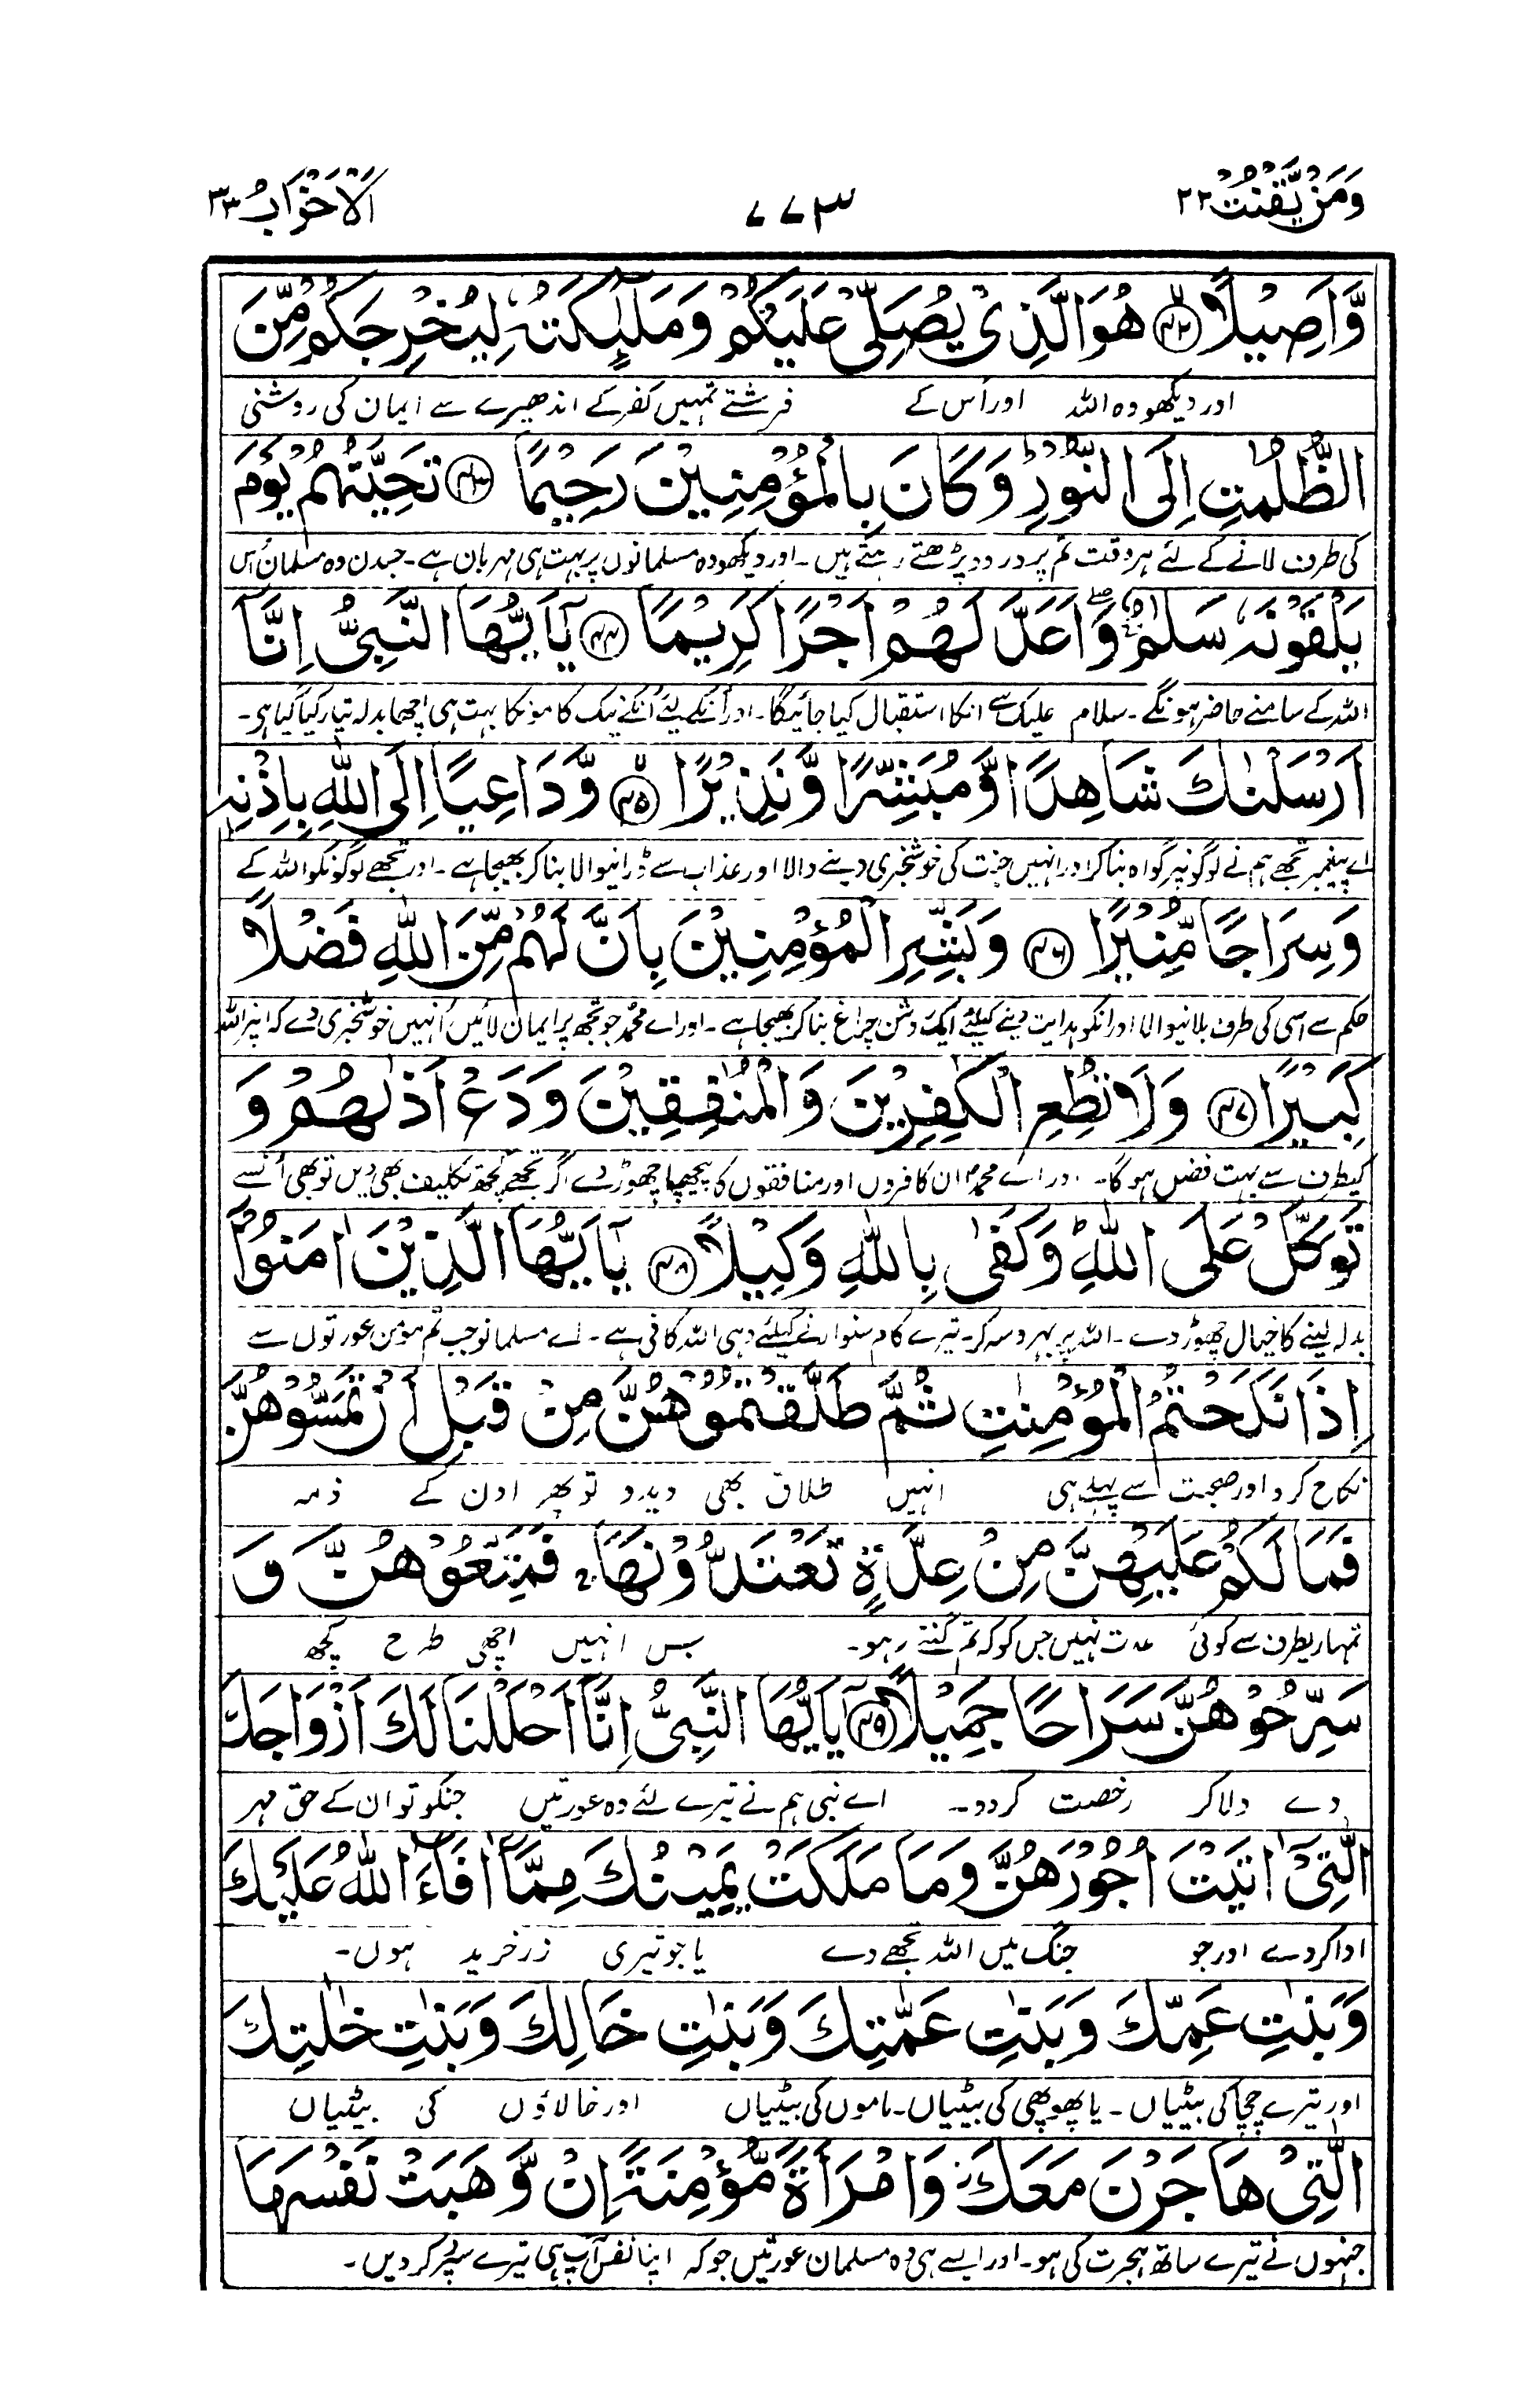 وَمَنْ يَّقْنُتْ ٢٢
٧٧٣
اَلْاَحْزَابُ ٣٣
وَّاَصِيْلًا ﴿٤٢﴾ هُوَ الَّذِيْ يُصَلِّيْ عَلَيْكُمْ وَمَلٰٓئِكَتُهٗ لِيُخْرِجَكُمْ مِّنَ
اور دیکھو وہ اللہ اور اُس کے فرشتے تمہیں کفر کے اندھیرے سے ایمان کی روشنی
الظُّلُمٰتِ اِلَى النُّوْرِ ؕ وَكَانَ بِالْمُؤْمِنِيْنَ رَحِيْمًا ﴿٤٣﴾ تَحِيَّتُهُمْ يَوْمَ
کی طرف لانے کے لئے ہر وقت تم پر درود پڑھتے رہتے ہیں۔ اور دیکھو وہ مسلمانوں پر بہت ہی مہربان ہے۔ جسدن وہ مسلمان اُس
يَلْقَوْنَهٗ سَلٰمٌ ۚ وَاَعَدَّ لَهُمْ اَجْرًا كَرِيْمًا ﴿٤٤﴾ يٰٓاَيُّهَا النَّبِيُّ اِنَّآ
اللہ کے سامنے حاضر ہونگے۔ سلام علیک سے انکا استقبال کیا جائیگا۔ اور اُنکے لئے اُنکے نیک کامونکا بہت ہی اچھا بدلہ تیار کیا گیا ہی۔
اَرْسَلْنٰكَ شَاهِدًا وَّمُبَشِّرًا وَّنَذِيْرًا ﴿٤٥﴾ وَّدَاعِيًا اِلَى اللّٰهِ بِاِذْنِهٖ
اے پیغمبر تجھے ہم نے لوگونپر گواہ بنا کر اور انہیں جنت کی خوشخبری دینے والا اور عذاب سے ڈرانیوالا بنا کر بھیجا ہے۔ اور تجھے لوگونکو اللہ کے
وَسِرَاجًا مُّنِيْرًا ﴿٤٦﴾ وَبَشِّرِ الْمُؤْمِنِيْنَ بِاَنَّ لَهُمْ مِّنَ اللّٰهِ فَضْلًا
حکم سے اسی کی طرف بلانیوالا اور انکو ہدایت دینے کیلئے ایک روشن چراغ بنا کر بھیجا ہے۔ اور اے محمدؐ جو تجھ پر ایمان لائیں اُنہیں خوشخبری دے کہ اپنر اللہ
كَبِيْرًا ﴿٤٧﴾ وَلَا تُطِعِ الْكٰفِرِيْنَ وَالْمُنٰفِقِيْنَ وَدَعْ اَذٰىهُمْ وَ
کیطرف سے بہت فضل ہوگا۔ اور اے محمدؐ ان کافروں اور منافقوں کا پیچھا چھوڑ دے اگر تجھے کچھ تکلیف بھی دیں تو بھی اُنسے
تَوَكَّلْ عَلَى اللّٰهِ ؕ وَكَفٰى بِاللّٰهِ وَكِيْلًا ﴿٤٨﴾ يٰٓاَيُّهَا الَّذِيْنَ اٰمَنُوْٓا
بدلہ لینے کا خیال چھوڑ دے۔ اللہ پر بہروسہ کر۔ تیرے کام سنوارنے کیلئے وہی اللہ کافی ہے۔ اے مسلمانو جب تم مومن عورتوں سے
اِذَا نَكَحْتُمُ الْمُؤْمِنٰتِ ثُمَّ طَلَّقْتُمُوْهُنَّ مِنْ قَبْلِ اَنْ تَمَسُّوْهُنَّ
نکاح کرو اور صحبت سے پہلے ہی انہیں طلاق بھی دیدو تو پھر اون کے ذمہ
فَمَا لَكُمْ عَلَيْهِنَّ مِنْ عِدَّةٍ تَعْتَدُّوْنَهَا ۚ فَمَتِّعُوْهُنَّ وَ
تمہاریطرف سے کوئی عدت نہیں جس کو کہ تم گنتے رہو۔ بس انہیں اچھی طرح کچھ
سَرِّحُوْهُنَّ سَرَاحًا جَمِيْلًا ﴿٤٩﴾ يٰٓاَيُّهَا النَّبِيُّ اِنَّآ اَحْلَلْنَا لَكَ اَزْوَاجَكَ
دے دلا کر رخصت کردو۔ اے نبی ہم نے تیرے لئے وہ عورتیں جنکو تو ان کے حق مہر
الّٰتِيْٓ اٰتَيْتَ اُجُوْرَهُنَّ وَمَا مَلَكَتْ يَمِيْنُكَ مِمَّآ اَفَآءَ اللّٰهُ عَلَيْكَ
ادا کر دے اور جو جنگ میں اللہ تجھے دے یا جو تیری زرخرید ہوں۔
وَبَنٰتِ عَمِّكَ وَبَنٰتِ عَمّٰتِكَ وَبَنٰتِ خَالِكَ وَبَنٰتِ خٰلٰتِكَ
اور تیرے چچا کی بیٹیاں۔ یا پھوپھی کی بیٹیاں۔ ماموں کی بیٹیاں اور خالاؤں کی بیٹیاں
الّٰتِيْ هَاجَرْنَ مَعَكَ ؗ وَامْرَاَةً مُّؤْمِنَةً اِنْ وَّهَبَتْ نَفْسَهَا
جنہوں نے تیرے ساتھ ہجرت کی ہو۔ اور ایسے ہی وہ مسلمان عورتیں جو کہ اپنا نفس آپ ہی تیرے سپرد کر دیں۔